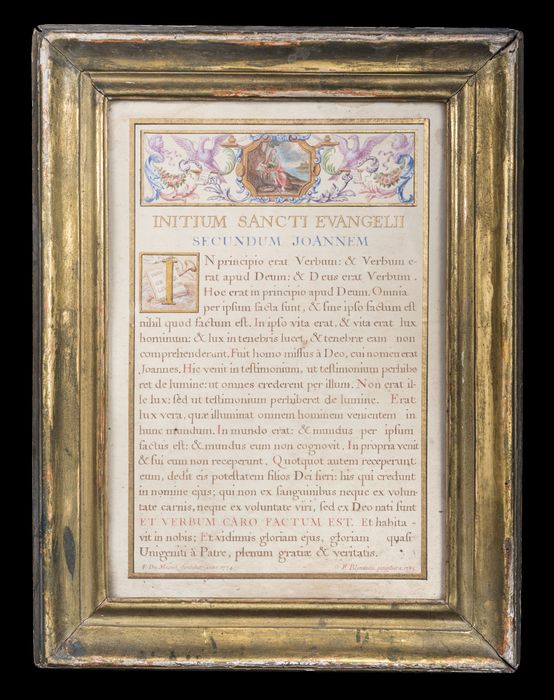 INITIUM SANCTI EVANGELII
SECUNDUM JOANNEM
IN principio erat Verbum: & Verbum e-
rat apud Deum: & Deus erat Verbum.
Hoc erat in principio apud Deum. Omnia
per ipsum facta sunt, & sine ipso factum est
nihil quod factum est. In ipso vita erat, & vita erat lux
hominum: & lux in tenebris lucet, & tenebræ eam non
comprehenderunt. Fuit homo missus à Deo, cui nomen erat
Joannes. Hic venit in testimonium, ut testimonium perhibe
ret de lumine: ut omnes crederent per illum. Non erat il-
le lux: sed ut testimonium perhiberet de lumine. Erat
lux vera, quæ illuminat omnem hominem venientem in
hunc mundum. In mundo erat: & mundus per ipsum
factus est: & mundus eum non cognovit. In propria venit
& sui eum non receperunt. Quotquot autem receperunt
eum, dedit eis potestatem filios Dei fieri: his qui credunt
in nomine ejus; qui non ex sanguinibus neque ex volun-
tate carnis, neque ex voluntate viri, sed ex Deo nati sunt
ET VERBUM CARO FACTUM EST. Et habita-
vit in nobis; Et vidimus gloriam ejus, gloriam quasi
Unigeniti à Patre, plenum gratiæ & veritatis.